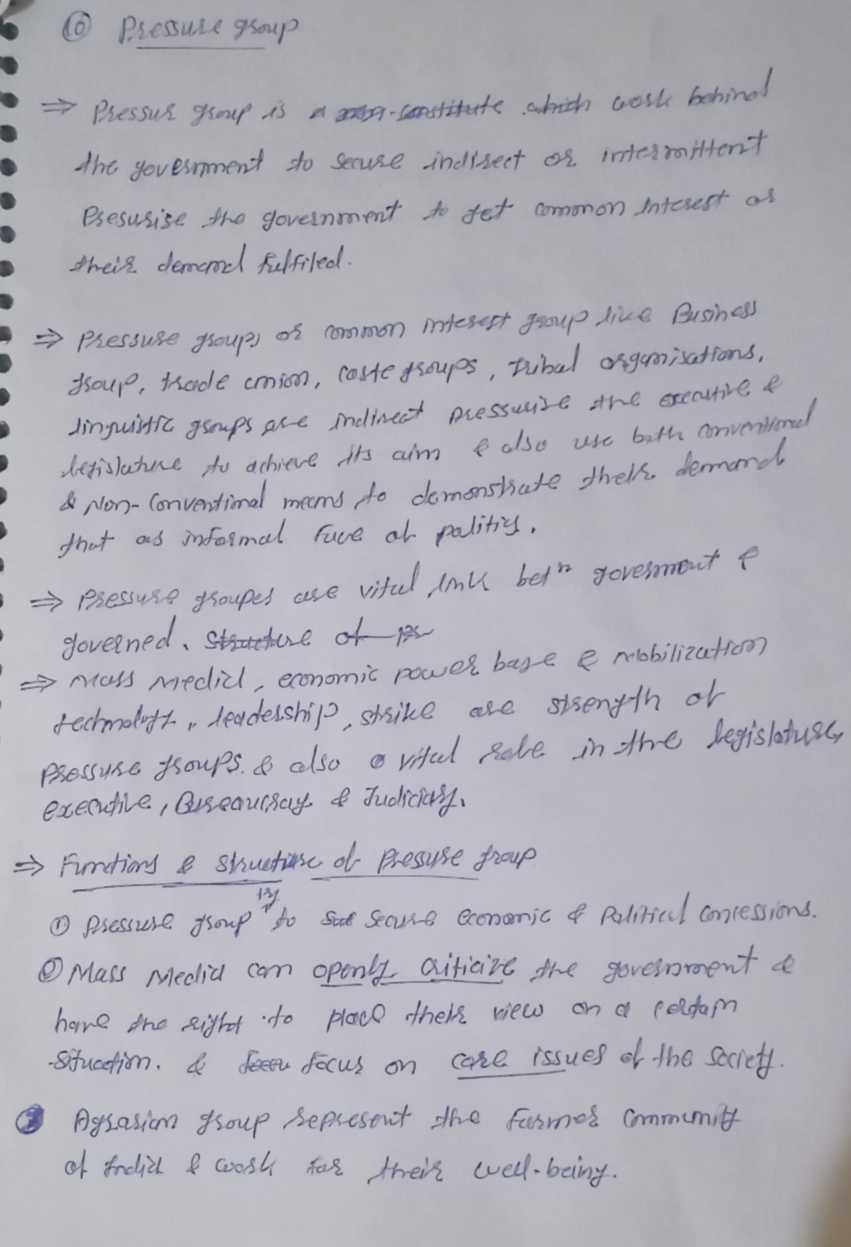 ⑩ Pressure group
⇒ Pressur group is a non-constitute which work behind
the government to secure indirect or intermittent
Presurise the government to get common Interest or
their demand fulfiled.
⇒ Pressure groups or common interest group like Business
group, trade union, caste groups, tribal organisations,
linguistic groups are indirect pressurize the executive &
legislature to achieve its aim & also use both conventional
& Non-Conventional means to demonstrate their demand
that as informal face of politics.
⇒ Pressure groupes are vital link betn government &
governed. Structure of pr
⇒ Mass Media, economic power base & mobilization
technology, leadership, strike are strength of
pressure groups. & also a vital role in the legislature,
executive, Bureaucracy & Judiciary.
⇒ Functions & structure of Presure group
① Pressure group is to Secure economic & Political concessions.
② Mass Media can openly criticize the government &
have the right to place their view on a certain
situation. & focus on core issues of the society.
③ Agrarian group represent the farmer community
of India & work for their well-being.